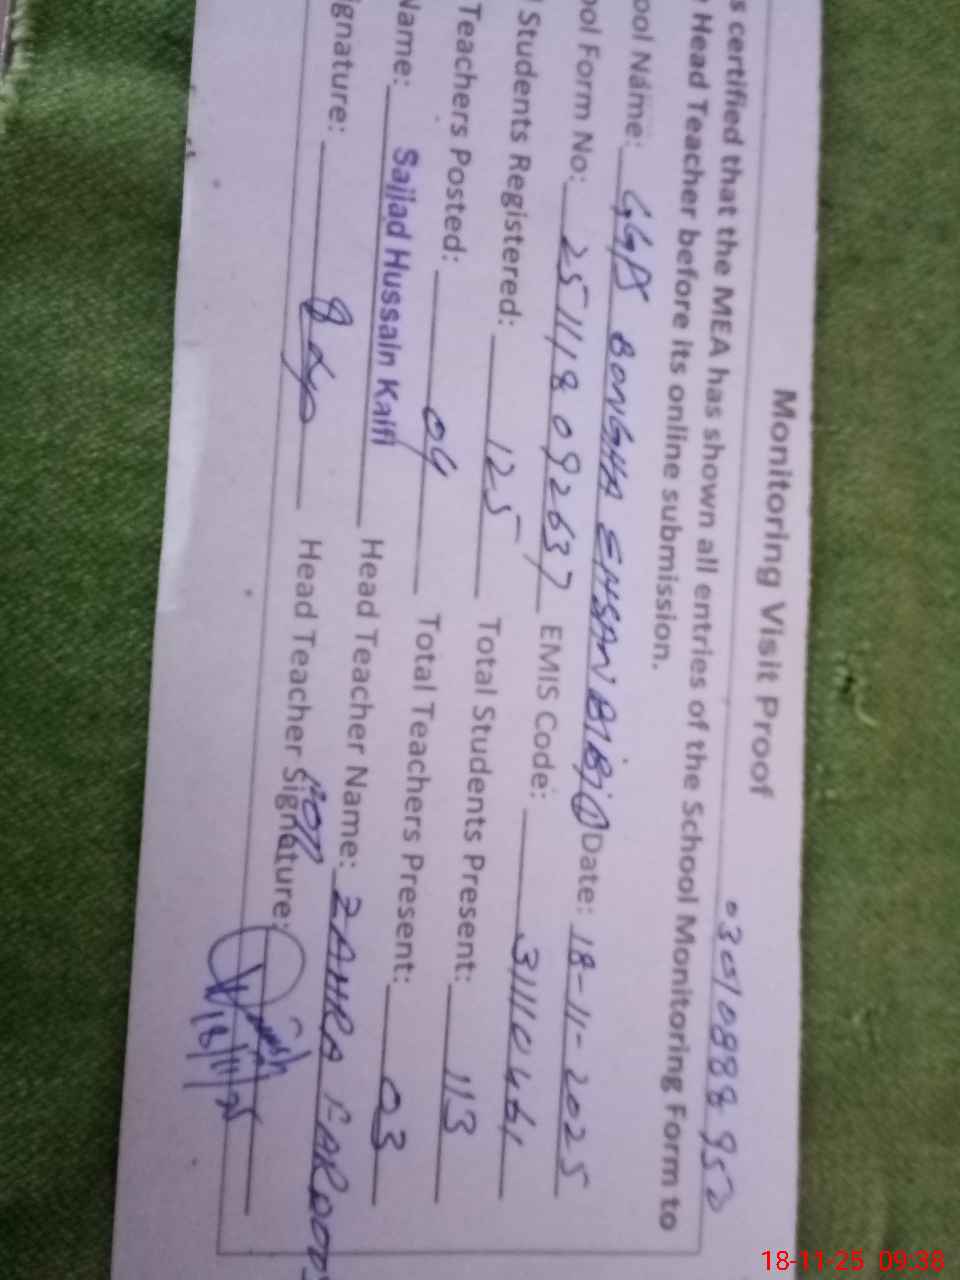 Monitoring Visit Proof
03010888950
s certified that the MEA has shown all entries of the School Monitoring Form to
Head Teacher before its online submission.
ool Name: GGPS BONGHA EHSAN BIBI Date: 18-11-2025
ool Form No: 251118092637 EMIS Code: 31110461
Students Registered: 125 Total Students Present: 113
Teachers Posted: 04 Total Teachers Present: 03
Name: Sajjad Hussain Kaifi Head Teacher Name: ZAHRA FAROOQ
ignature: Head Teacher Signature:
18/11/25
18-11-25 09:38